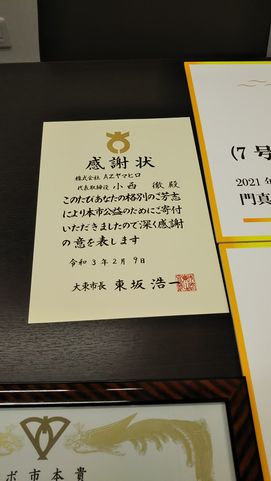 感謝状
株式会社AZヤマヒロ
代表取締役 小西 徹 殿
このたびあなたの格別のご芳志
により本市公益のためにご寄付
いただきましたので深く感謝
の意を表します
令和3年2月9日
大東市長 東坂浩一
(7号
2021年
門真
ボ市本貴